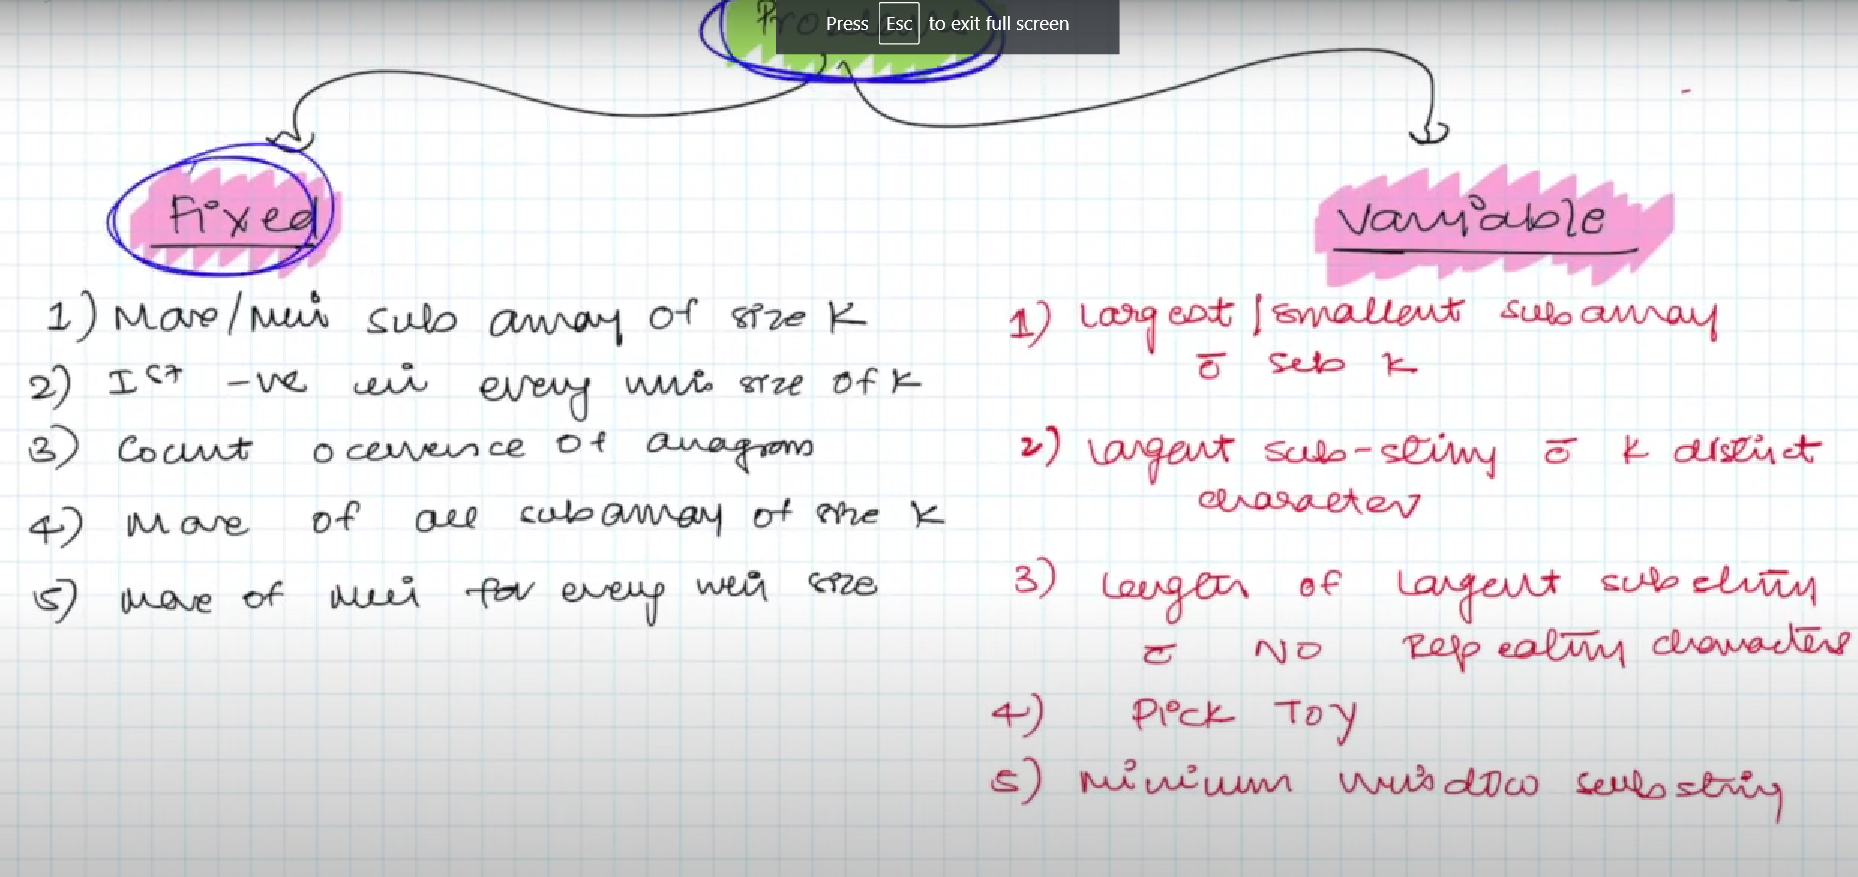 Problems
Press Esc to exit full screen
Fixed
Variable
1) Max/Min sub array of size K
2) Ist -ve in every win size of K
3) Count occurence of anagram
4) Max of all subarray of size K
5) Max of Min for every win size
1) Largest / smallest subarray
c̄ sum K
2) Largest sub-string c̄ K distinct
character
3) Length of largest substring
c̄ NO Repeating characters
4) Pick Toy
5) Minimum window substring